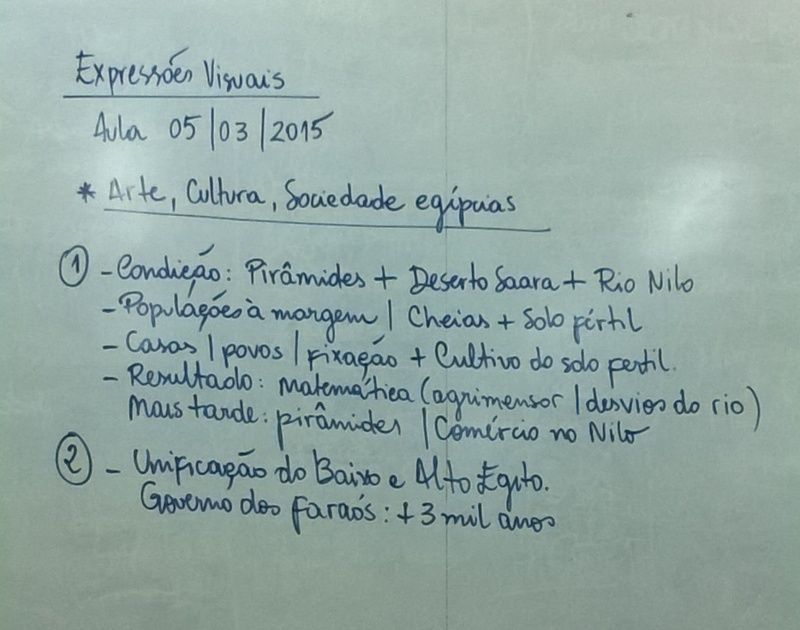 Expressões Visuais
Aula 05/03/2015
* Arte, Cultura, Sociedade egípcias
① - Condição: Pirâmides + Deserto Saara + Rio Nilo
- Populações à margem | Cheias + Solo fértil
- Casas | povos | fixação + Cultivo do solo fertil.
- Resultado: Matemática (agrimensor | desvios do rio)
Mais tarde: pirâmides | Comércio no Nilo
② - Unificação do Baixo e Alto Egito.
Governo dos faraós: + 3 mil anos